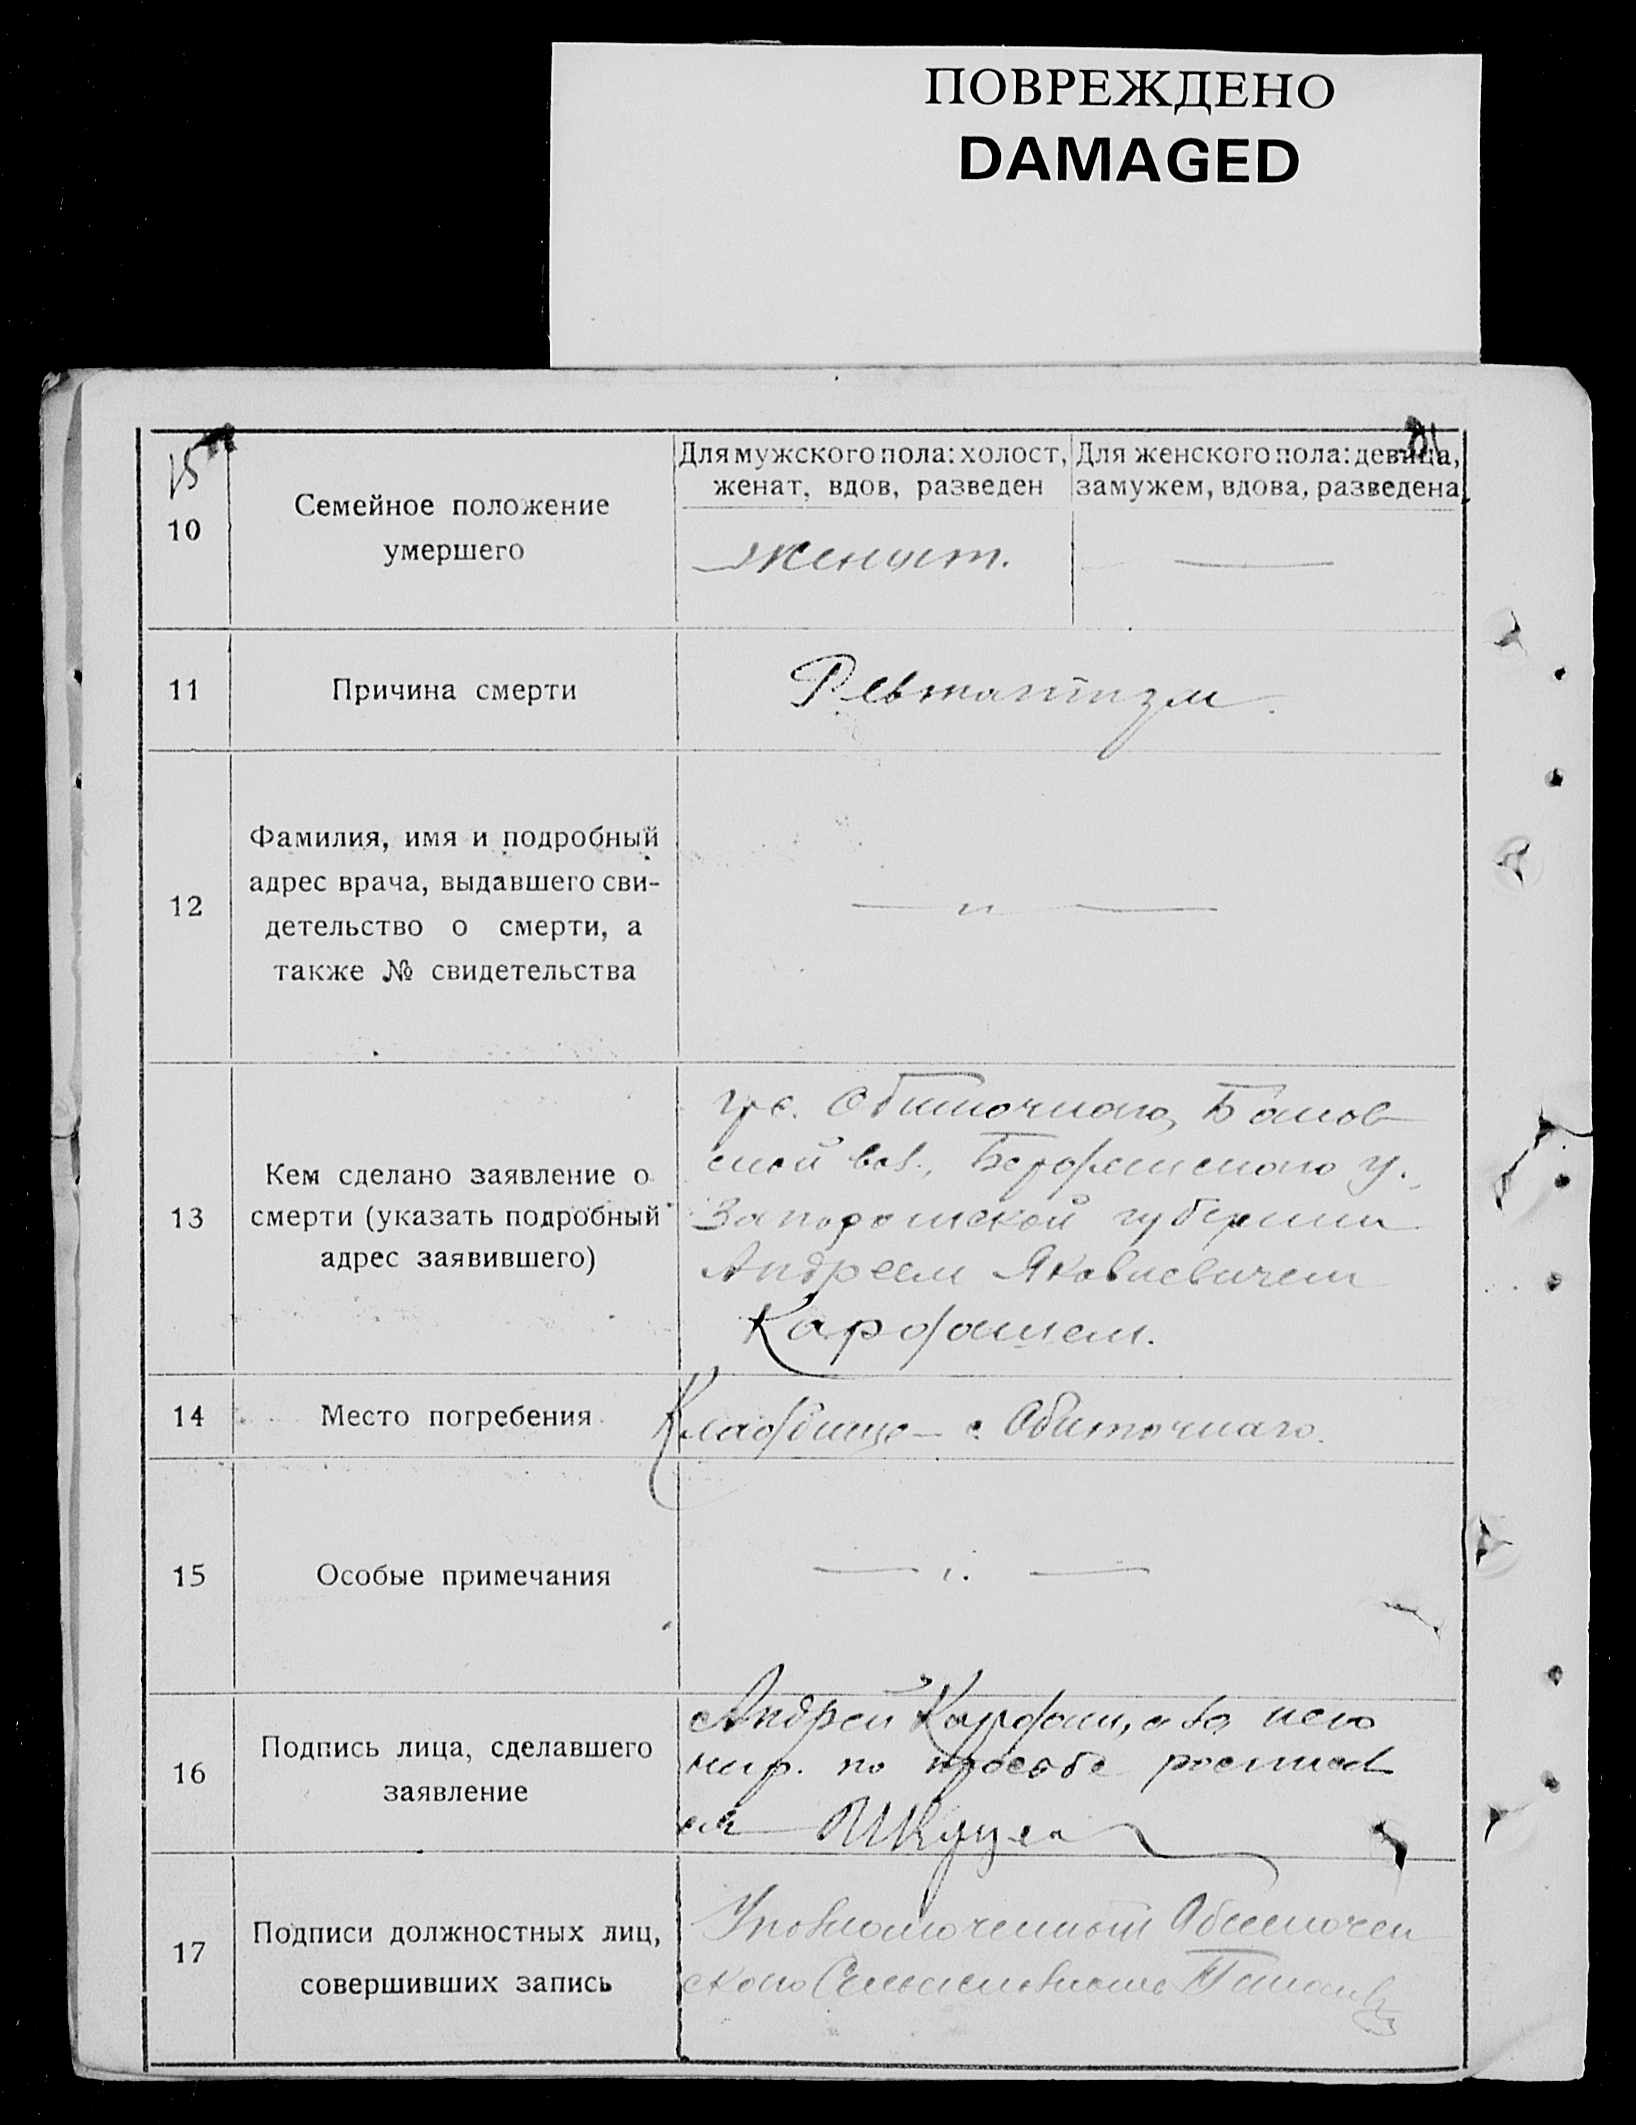 ПОВРЕЖДЕНО
DAMAGED
15
10
Семейное положение
умершего
Для мужского пола: холост,
женат, вдов, разведен
Для женского пола: девица,
замужем, вдова, разведена
женат.
11
Причина смерти
Ревматизм.
12
Фамилия, имя и подробный
адрес врача, выдавшего сви-
детельство о смерти, а
также № свидетельства
— " —
13
Кем сделано заявление о
смерти (указать подробный
адрес заявившего)
гр. с. Обиточного, Банов
ской вол., Бердянского у.,
Запорожской губернии
Андреем Яковлевичем
Кардашем.
14
Место погребения
Кладбище с. Обиточного.
15
Особые примечания
— " —
16
Подпись лица, сделавшего
заявление
Андрей Кардаш, а за него
негр. по просьбе
17
Подписи должностных лиц,
совершивших запись
Уполномоченный Обиточен
ского